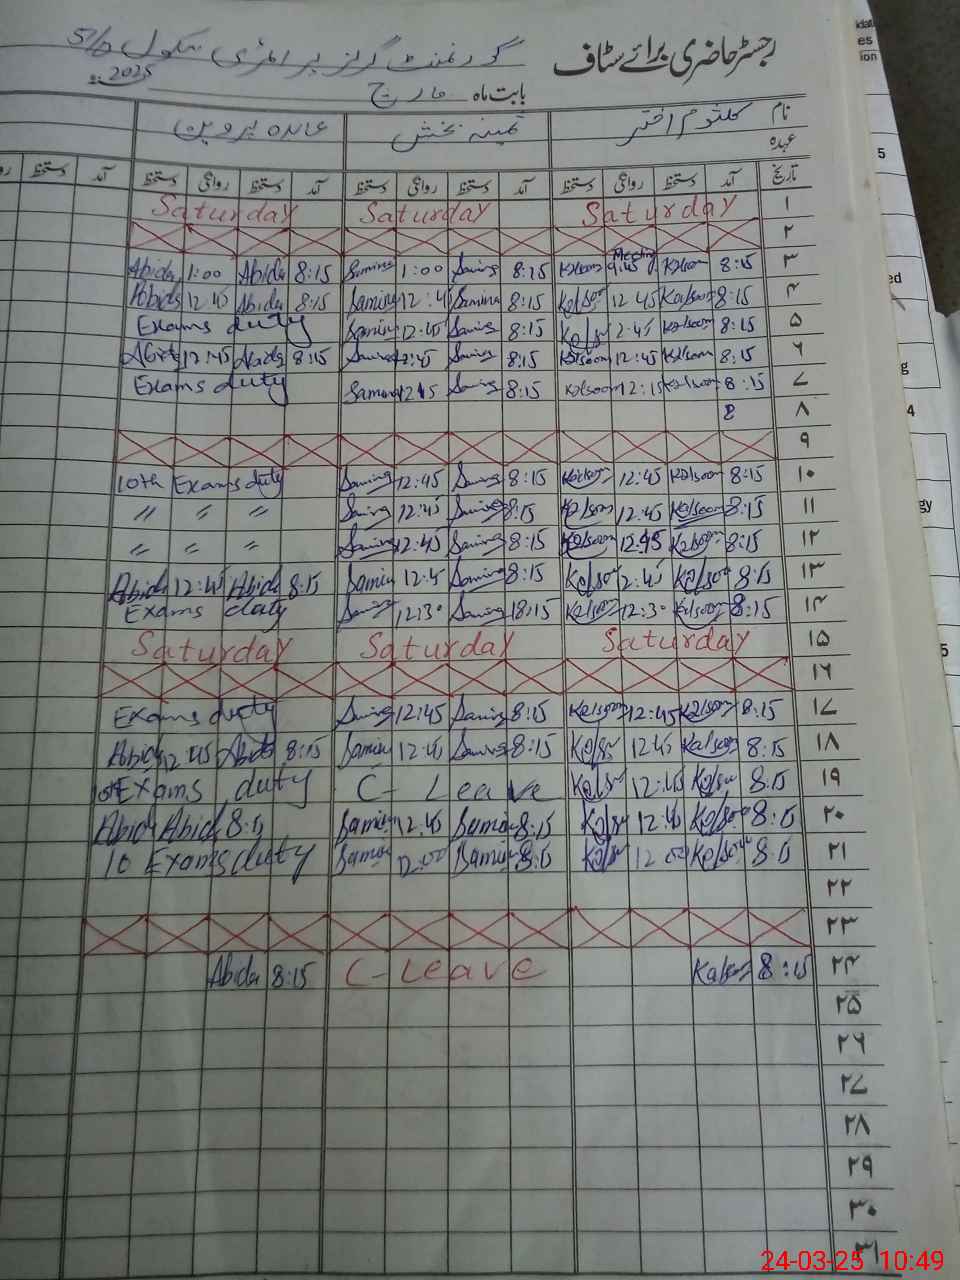 رجسٹر حاضری برائے سٹاف گورنمنٹ گرلز پرائمری سکول
بابت ماہ مارچ 2025
نام کلثوم اختر ثمینہ بخش عابدہ پروین
عہدہ
تاریخ آمد دستخط روانگی دستخط آمد دستخط روانگی دستخط آمد دستخط روانگی دستخط آمد دستخط
۱ Saturday Saturday Saturday
۲
Abida 1:00 Abida 8:15 Samina 1:00 Samina 8:15 Kalsoom 9:45 Meeting Kalsoom 8:15 ۳
Abida 12:45 Abida 8:15 Samina 12:45 Samina 8:15 Kalsoom 12:45 Kalsoom 8:15 ۴
Exams duty Samina 12:45 Samina 8:15 Kalsoom 2:45 Kalsoom 8:15 ۵
Abida 12:45 Abida 8:15 Samina 12:45 Samina 8:15 Kalsoom 12:45 Kalsoom 8:15 ۶
Exams duty Samina 12:15 Samina 8:15 Kalsoom 12:15 Kalsoom 8:15 ۷
8 ۸
۹
10th Exams duty Samina 12:45 Samina 8:15 Kalsoom 12:45 Kalsoom 8:15 ۱۰
〃 〃 〃 Samina 12:45 Samina 8:15 Kalsoom 12:45 Kalsoom 8:15 ۱۱
〃 〃 〃 Samina 12:45 Samina 8:15 Kalsoom 12:45 Kalsoom 8:15 ۱۲
Abida 12:45 Abida 8:15 Samina 12:45 Samina 8:15 Kalsoom 2:45 Kalsoom 8:15 ۱۳
Exams duty Samina 12:30 Samina 8:15 Kalsoom 12:30 Kalsoom 8:15 ۱۴
Saturday Saturday Saturday ۱۵
۱۶
Exams duty Samina 12:45 Samina 8:15 Kalsoom 12:45 Kalsoom 8:15 ۱۷
Abida 12:45 Abida 8:15 Samina 12:45 Samina 8:15 Kalsoom 12:45 Kalsoom 8:15 ۱۸
Exams duty C- Leave Kalsoom 12:45 Kalsoom 8:15 ۱۹
Abida Abida 8:15 Samina 12:45 Samina 8:15 Kalsoom 12:45 Kalsoom 8:15 ۲۰
10 Exams duty Samina 12:00 Samina 8:15 Kalsoom 12:00 Kalsoom 8:15 ۲۱
۲۲
۲۳
Abida 8:15 C-Leave Kalsoom 8:15 ۲۴
۲۵
۲۶
۲۷
۲۸
۲۹
۳۰
۳۱
24-03-25 10:49